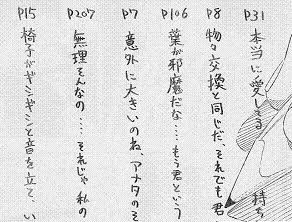 P31 本当に愛してる 待ち
P8 物々交換と同じだ、それでも君
P106 葉が邪魔だな……もう君という
P7 意外に大きいのね、アナタのそ
P207 無理そんなの……それじゃ私の
P15 椅子がギシギシと音を立て、い